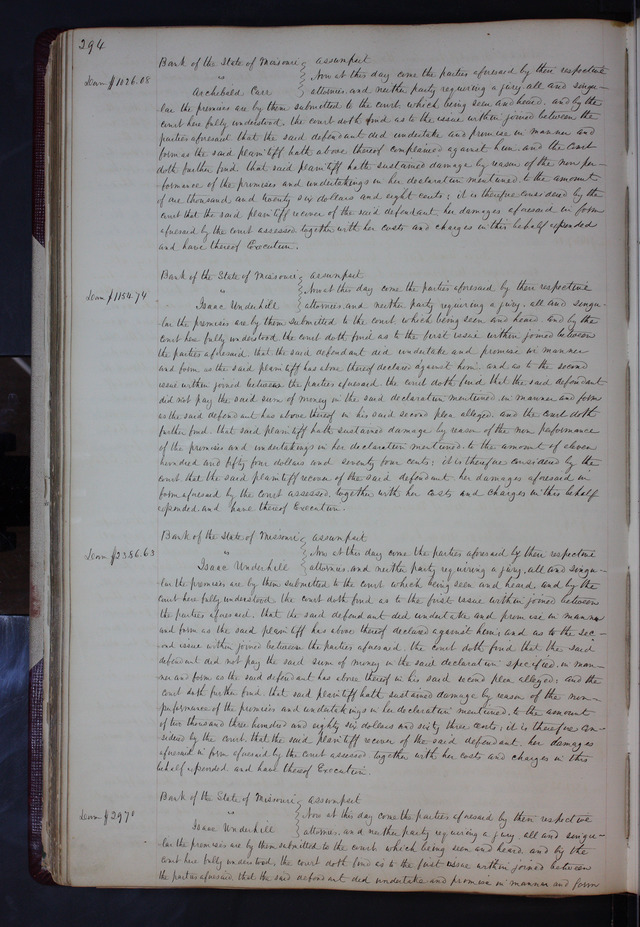 294
Bank of the State of Missouri } assumpsit
Dam $1026.08 " } Now at this day come the parties aforesaid by their respective
Archibald Carr } attornies, and neither party requiring a jury, all and singu-
lar the premises are by them submitted to the court which being seen and heard, and by the
court here fully understood, the court doth find as to the issue within joined between the
parties aforesaid, that the said defendant did undertake and promise in manner and
form as the said plaintiff hath above thereof complained against him. and the court
doth further find, that said plaintiff hath sustained damage by reason of the non per-
formance of the premises and undertakings in her declaration mentioned to the amount
of one thousand and twenty six dollars and eight cents; it is therefore considered by the
court that the said plaintiff recover of the said defendant her damages aforesaid in form
aforesaid by the court assessed, together with her costs and charges in this behalf expended
and have thereof Execution.
Bank of the State of Missouri } assumpsit
Dam $1154.74 " } Now at this day come the parties aforesaid by their respective
Isaac Underhill } attornies, and neither party requiring a jury, all and singu-
lar the premises are by them submitted to the court which being seen and heard and by the
court here fully understood the court doth find as to the first issue within joined between
the parties aforesaid, that the said defendant did undertake and promise in manner
and form as the said plaintiff has above thereof declared against him, and as to the second
issue within joined between the parties aforesaid the court doth find that the said defendant
did not pay the said sum of money in the said declaration mentioned in manner and form
as the said defendant has above thereof in his said second plea alleged, and the court doth
further find, that said plaintiff hath sustained damage by reason of the non performance
of the premises and undertakings in her declaration mentioned to the amount of eleven
hundred and fifty four dollars and seventy four cents; it is therefore considered by the
court that the said plaintiff recover of the said defendant her damages aforesaid in
form aforesaid by the court assessed, together with her costs and charges in this behalf
expended and have thereof Execution.
Bank of the State of Missouri } assumpsit
Dam $2386.63 " } Now at this day come the parties aforesaid by their respective
Isaac Underhill } attornies, and neither party requiring a jury, all and singu-
lar the premises are by them submitted to the court which being seen and heard, and by the
court here fully understood, the court doth find as to the first issue within joined between
the parties aforesaid, that the said defendant did undertake and promise in manner
and form as the said plaintiff has above thereof declared against him, and as to the sec-
ond issue within joined between the parties aforesaid, the court doth find that the said
defendant did not pay the said sum of money in the said declaration specified, in man-
ner and form as the said defendant has above thereof in his said second plea alleged, and the
court doth further find that said plaintiff hath sustained damage by reason of the non-
performance of the premises and undertakings in her declaration mentioned, to the amount
of two thousand three hundred and eighty six dollars and sixty three cents; it is therefore con-
sidered by the court, that the said plaintiff recover of the said defendant, her damages
aforesaid in form aforesaid by the court assessed together with her costs and charges in this
behalf expended and have thereof Execution.
Bank of the State of Missouri } assumpsit
Dam " } Now at this day come the parties aforesaid by their respective
Isaac Underhill } attornies, and neither party requiring a jury, all and singu-
lar the premises are by them submitted to the court which being seen and heard, and by the
court here fully understood, the court doth find as to the first issue within joined between
the parties aforesaid, that the said defendant did undertake and promise in manner and form